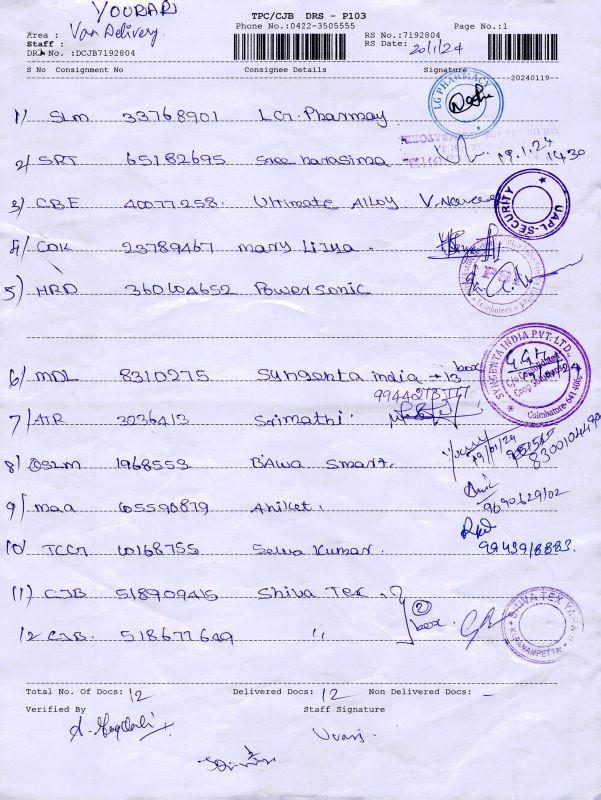 YOURAR
TPC/CJB DRS - P103
Phone No.:0422-3505555 Page No.:1
Area : Van Delivery
Staff :
RS No.:7192804
RS Date: 20/1/24
DRS No. :DCJB7192804
S No Consignment No Consignee Details Signature
20240119
LG PHARMACY
1) SLM 33768901 LG Pharmay
2) SRT 65182695 Sree harasima 19.1.24 1430
3) CBE 40077258 Ultimate Alloy V. Naveen
UAPL-SECURITY
4) COK 23789467 mary Lijya .
5) HRD 360604652 Powersonic
Coimbatore
SYNGENTA INDIA PVT. LTD.,
Coimbatore-641 406
6) MDL 8310275 Syngenta india → 13 box
7) AIR 3236413 Srimathi .
19/01/24
8300104479
8) OSLM 1968553 BAwa Smart.
9) maa 605590879 Aniket .
9690629102
10) TCCR 60168755 Selva Kumar .
9943918883.
11) CJB 518909415 Shiva Tex .
12 CJB. 518677649 "
2 box
SHIVA TEX YARN
KARANAMPETTAI
Total No. Of Docs: 12 Delivered Docs: 12 Non Delivered Docs: -
Verified By Staff Signature